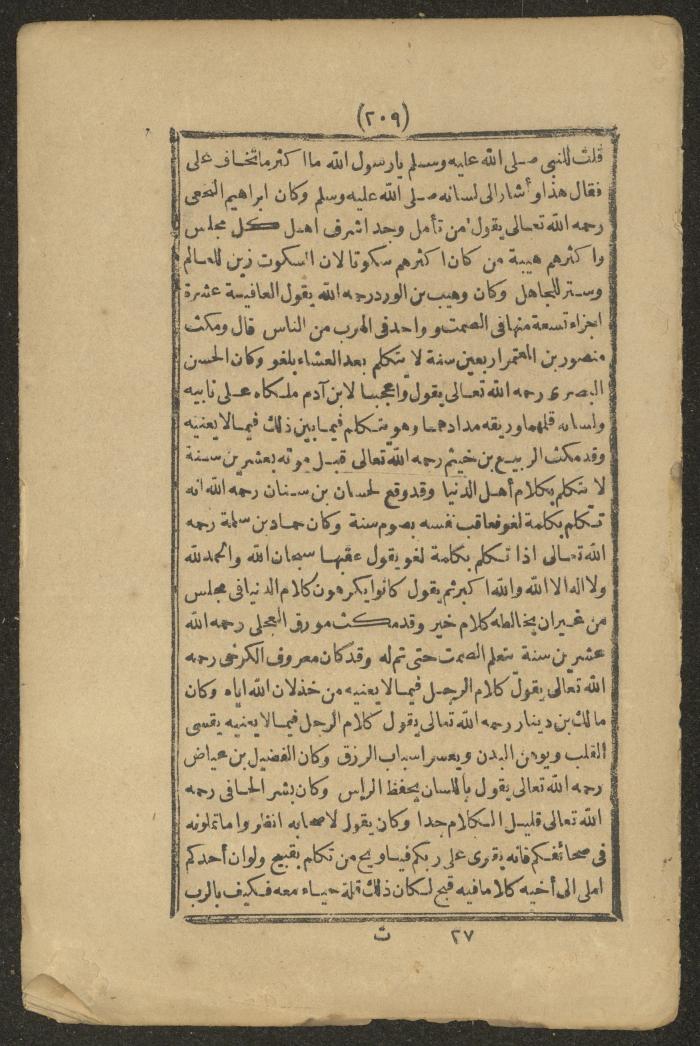 (٢٠٩)
قلت للنبي صلى الله عليه وسلم يارسول الله ما اكثر ماتخاف على
فقال هذا وأشار الى لسانه صلى الله عليه وسلم وكان ابراهيم النخعى
رحمه الله تعالى يقول من تأمل وجد اشرف اهل كل مجلس
واكثرهم هيبة من كان اكثرهم سكوتا لان السكوت زين للعالم
وستر للجاهل وكان وهيب بن الورد رحمه الله يقول العافيسة عشرة
اجزاء تسعة منها فى الصمت وواحد فى الهرب من الناس قال ومكث
منصور بن المعتمر اربعين سنة لا يتكلم بعد العشاء بلغو وكان الحسن
البصرى رحمه الله تعالى يقول واعجبا لابن آدم ملكاه على نابيه
ولسانه قلمهما وريقه مدادهما وهو يتكلم فيما بين ذلك فيما لايعنيه
وقد مكث الربيع بن خيثم رحمه الله تعالى قبل موته بعشرين سنة
لا يتكلم بكلام أهل الدنيا وقد وقع لحسان بن سنان رحمه الله انه
تكلم بكلمة لغو فعاقب نفسه بصوم سنة وكان حماد بن سلمة رحمه
الله تعالى اذا تكلم بكلمة لغو يقول عقبها سبحان الله والحمد لله
ولااله الا الله والله اكبر ثم يقول كانوا يكرهون كلام الدنيا فى مجلس
من غير ان يخالطه كلام خير وقد مكث مورق العجلى رحمه الله
عشرين سنة يتعلم الصمت حتى تم له وقد كان معروف الكرخى رحمه
الله تعالى يقول كلام الرجل فيما لايعنيه من خذلان الله اياه وكان
مالك بن دينار رحمه الله تعالى يقول كلام الرجل فيما لايعنيه يقسى
القلب ويوهن البدن ويعسر اسباب الرزق وكان الفضيل بن عياض
رحمه الله تعالى يقول باللسان يحفظ الراس وكان بشر الحافى رحمه
الله تعالى قليل الكلام جدا وكان يقول لاصحابه انظروا ماتملونه
فى صحائفكم فانه يقرى على ربكم فياويح من تكلم بقبيح ولو ان أحدكم
املى الى أخيه كلاما فيه قبح لكان ذلك قلة حياء معه فكيف بالرب
٢٧ ث